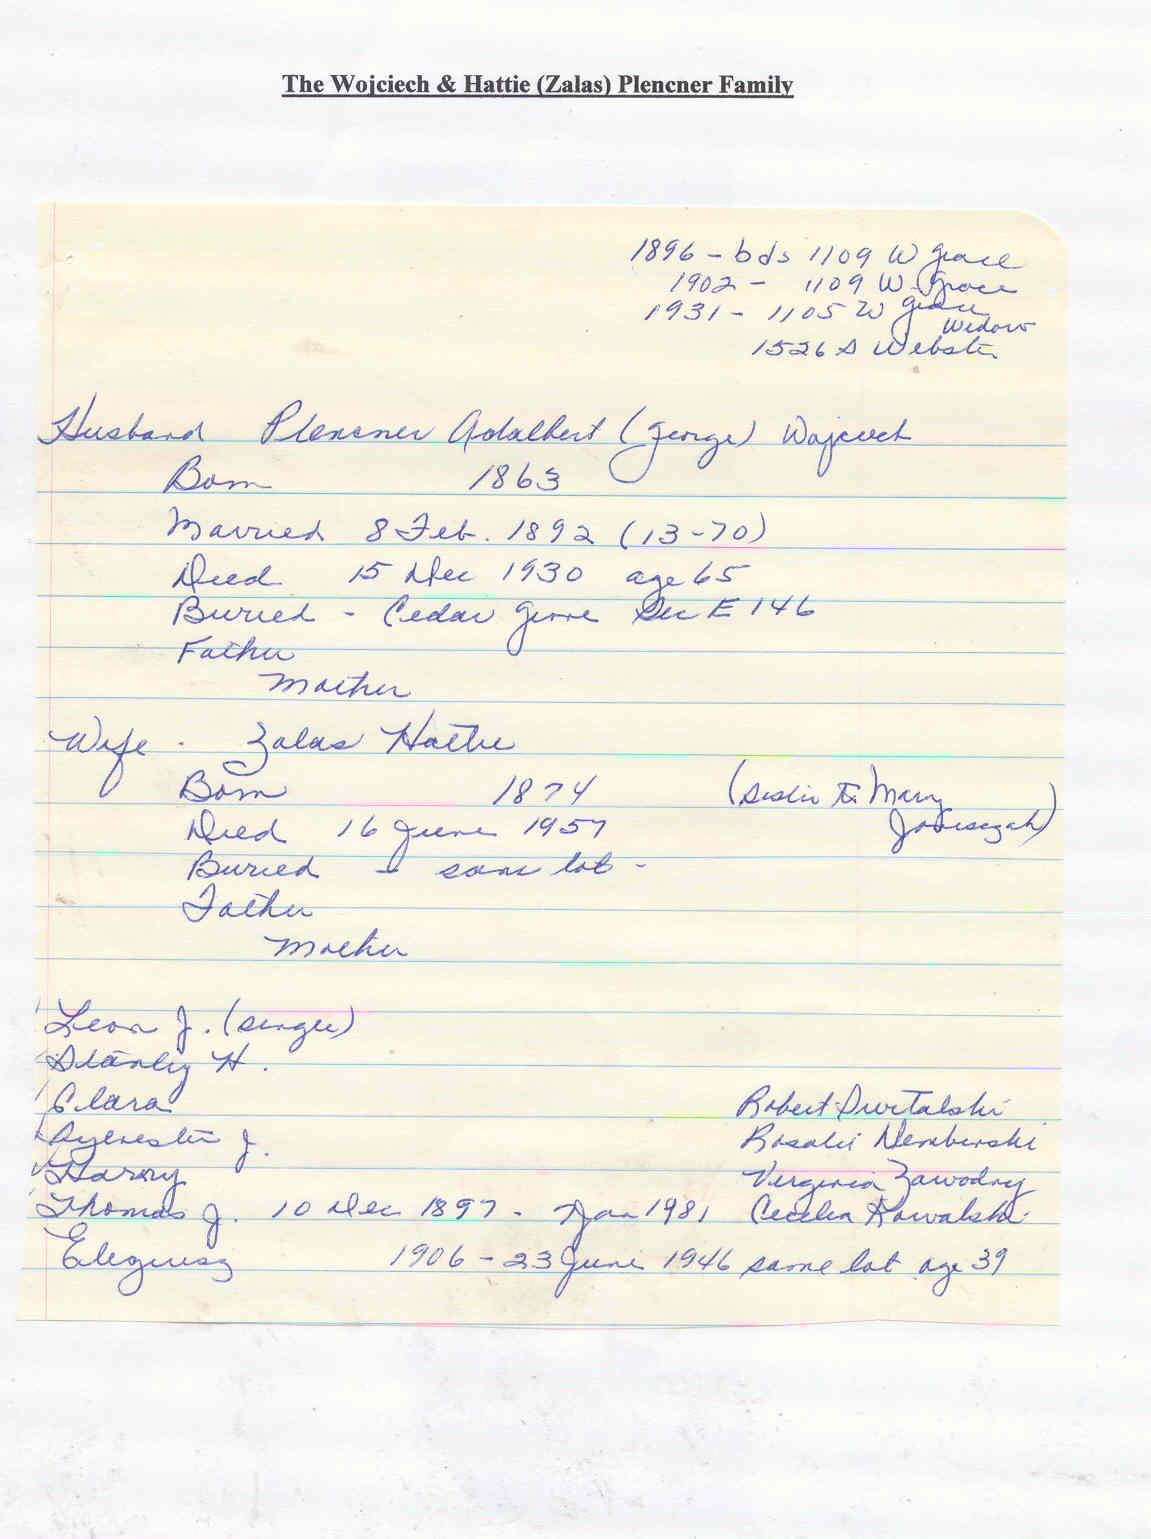 The Wojciech & Hattie (Zalas) Plencner Family
1896 - bds 1109 W Grace
1902 - 1109 W Grace
1931 - 1105 W Grace
Widow
1526 S Webster
Husband Plencner Adalbert (George)
Born 1863
Married 8 Feb. 1892 (13-70)
Died 15 Dec 1930 age 65
Buried - Cedar Grove Sec E 146
Father
Mother
Wife - Zalas Hattie
Born 1874 (Sister to Mary
Died 16 June 1957
Buried - same lot -
Father
Mother
Leon J. (single)
Stanley H.
Clara Robert Switalski
Sylvester J. Rosalie
Harry Virginia Zawodny
Thomas J. 10 Dec 1897 - Jan 1981 Cecelia Kowalski
1906 - 23 June 1946 same lot age 39